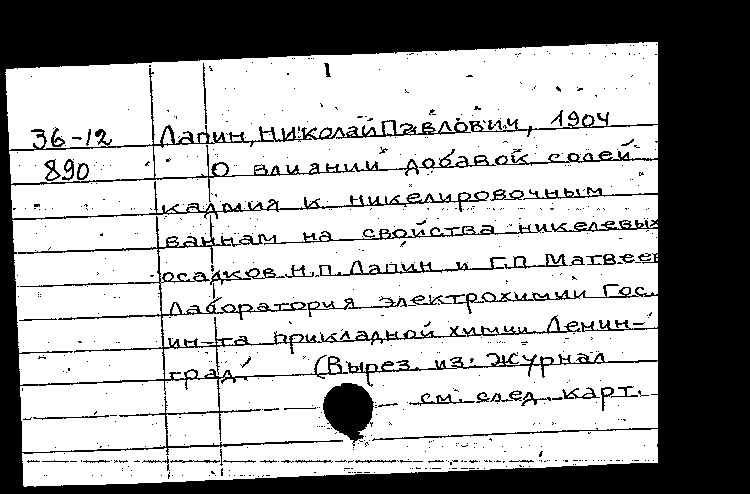 1
36-12 Лапин, Николай Павлович, 1904
890 О влиянии добавок солей
кадмия к никелировочным
ваннам на свойства никелевых
осадков. Н.П. Лапин и Г.П. Матвеев
Лаборатория электрохимии Гос.
ин-та прикладной химии Ленин-
град. (Вырез. из: Журнал
см. след. карт.